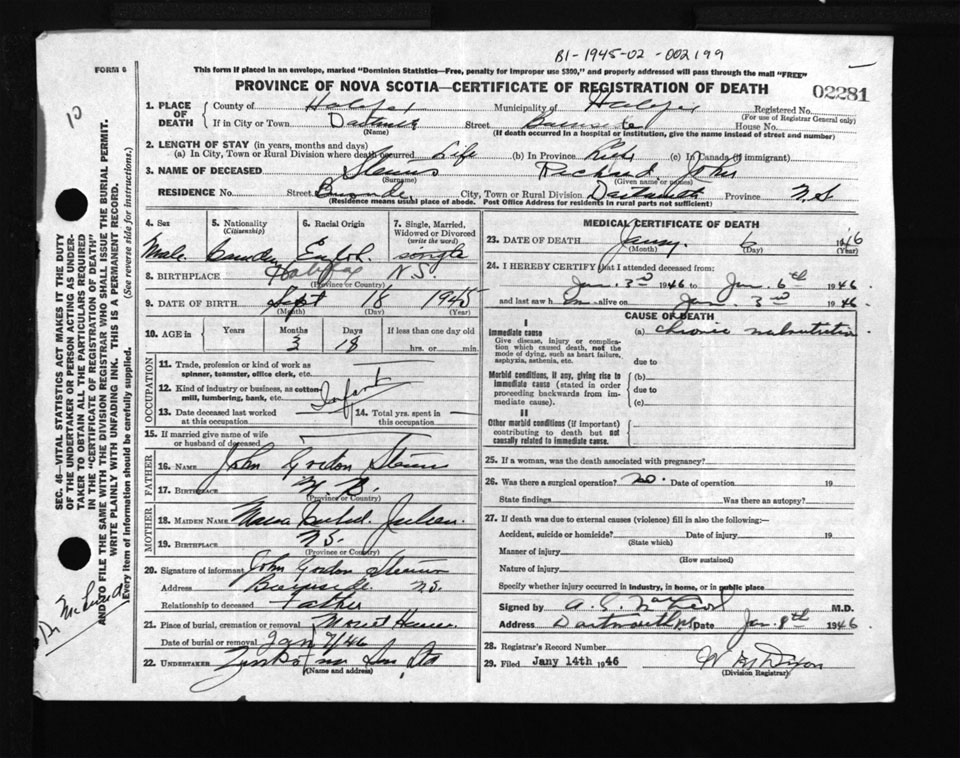 B1-1945-02-002199
FORM 6
This form if placed in an envelope, marked "Dominion Statistics—Free, penalty for improper use $300," and properly addressed will pass through the mail "FREE"
PROVINCE OF NOVA SCOTIA—CERTIFICATE OF REGISTRATION OF DEATH
02281
10
SEC. 46—VITAL STATISTICS ACT MAKES IT THE DUTY
OF THE UNDERTAKER OR PERSON ACTING AS UNDER-
TAKER TO OBTAIN ALL THE PARTICULARS REQUIRED
IN THE "CERTIFICATE OF REGISTRATION OF DEATH"
AND TO FILE THE SAME WITH THE DIVISION REGISTRAR WHO SHALL ISSUE THE BURIAL PERMIT.
WRITE PLAINLY WITH UNFADING INK. THIS IS A PERMANENT RECORD.
Every item of information should be carefully supplied. (See reverse side for instructions.)
1. PLACE OF DEATH
County of Halifax Municipality of Halifax Registered No.
(For use of Registrar General only)
If in City or Town Dartmouth Street Burnside House No.
(Name) (If death occurred in a hospital or institution, give the name instead of street and number)
2. LENGTH OF STAY (in years, months and days)
(a) In City, Town or Rural Division where death occurred Life (b) In Province Life (c) In Canada (if immigrant)
3. NAME OF DECEASED Richard John
(Surname) (Given name or names)
RESIDENCE No. Street Burnside City, Town or Rural Division Dartmouth Province N.S
(Residence means usual place of abode. Post Office Address for residents in rural parts not sufficient)
4. Sex
5. Nationality (Citizenship)
6. Racial Origin
7. Single, Married, Widowed or Divorced (write the word)
Male Canadian English single
8. BIRTHPLACE Halifax N.S.
(Province or Country)
9. DATE OF BIRTH Sept 18 1945
(Month) (Day) (Year)
10. AGE in Years Months Days If less than one day old
3 18 hrs. or min.
OCCUPATION
11. Trade, profession or kind of work as
spinner, teamster, office clerk, etc.
12. Kind of industry or business, as cotton-
mill, lumbering, bank, etc.
Infant
13. Date deceased last worked
at this occupation
14. Total yrs. spent in
this occupation
15. If married give name of wife
or husband of deceased
FATHER
16. NAME John Gordon
17. BIRTHPLACE N.B.
(Province or Country)
MOTHER
18. MAIDEN NAME
19. BIRTHPLACE N.S.
(Province or Country)
20. Signature of informant John Gordon
Address Burnside N.S.
Relationship to deceased Father
21. Place of burial, cremation or removal
Date of burial or removal Jan 7/46
22. UNDERTAKER Ltd
(Name and address)
MEDICAL CERTIFICATE OF DEATH
23. DATE OF DEATH Jany. 6 1946
(Month) (Day) (Year)
24. I HEREBY CERTIFY that I attended deceased from:
Jan. 3rd 1946 to Jan. 6th 1946
and last saw him alive on Jan. 3rd 1946.
CAUSE OF DEATH
I
Immediate cause
Give disease, injury or complica-
tion which caused death, not the
mode of dying, such as heart failure,
asphyxia, asthenia, etc.
(a) chronic malnutrition
due to
Morbid conditions, if any, giving rise to
immediate cause (stated in order
proceeding backwards from im-
mediate cause).
(b)
due to
(c)
II
Other morbid conditions (if important)
contributing to death but not
causally related to immediate cause.
25. If a woman, was the death associated with pregnancy?
26. Was there a surgical operation? no. Date of operation 19
State findings Was there an autopsy?
27. If death was due to external causes (violence) fill in also the following:—
Accident, suicide or homicide? Date of injury 19
(State which)
Manner of injury
(How sustained)
Nature of injury
Specify whether injury occurred in industry, in home, or in public place
Signed by M.D.
Address Dartmouth NS Date Jan. 8th 1946
28. Registrar's Record Number
29. Filed Jany 14th 1946 Dixon
(Division Registrar)